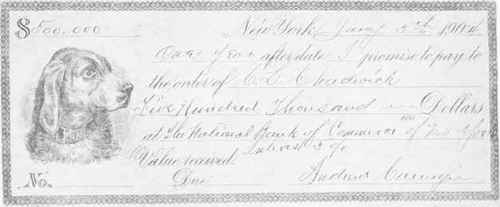 $500.000 New York, Jany 5th 1904
One Year after date I promise to pay to
the order of C. L. Chadwick
Five Hundred Thousand Dollars
at The National Bank of Commerce of New York
Value received Interest 5 %
No. Due Andrew Carnegie